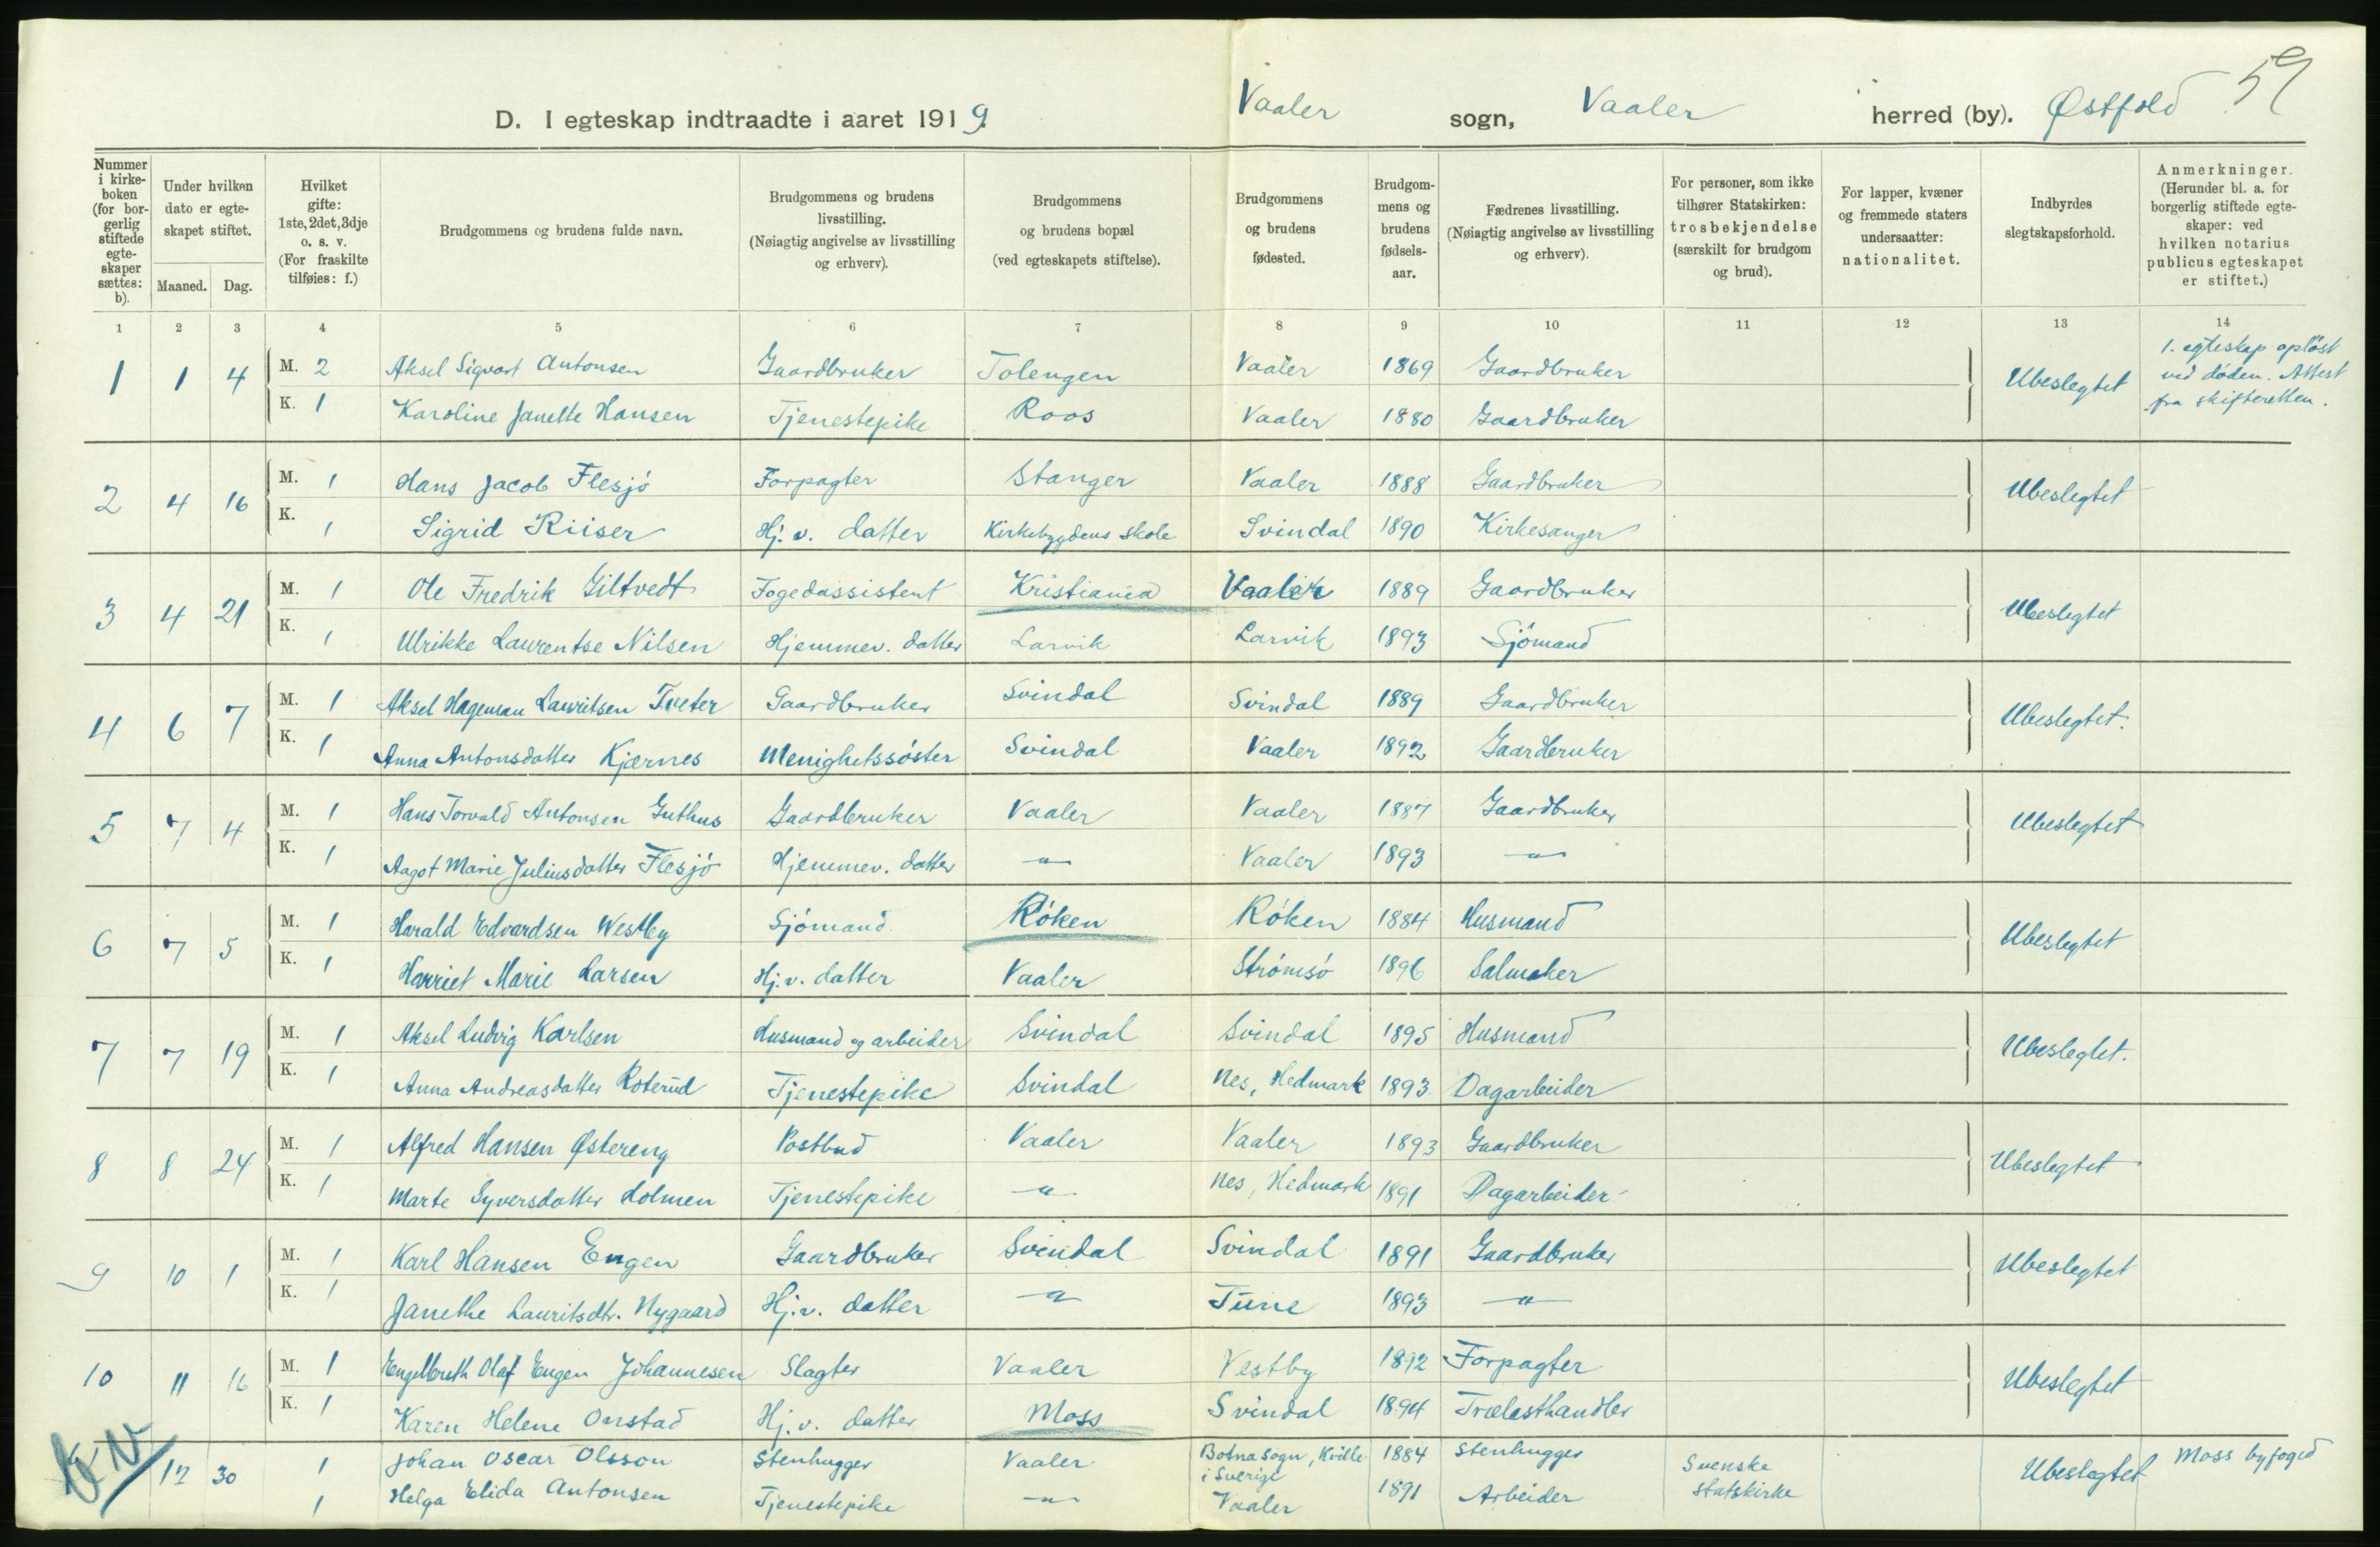 D. I egteskap indtraadte i aaret 1919. Vaaler sogn, Vaaler herred (by). Østfold 59
Nummer i kirke-boken (for bor-gerlig stiftede egte-skaper sættes: b).
Under hvilken dato er egte-skapet stiftet.
Maaned. Dag.
Hvilket gifte: 1ste, 2det, 3dje o. s. v. (For fraskilte tilføies: f.)
Brudgommens og brudens fulde navn.
Brudgommens og brudens livsstilling. (Nøiagtig angivelse av livsstilling og erhverv).
Brudgommens og brudens bopæl (ved egteskapets stiftelse).
Brudgommens og brudens fødested.
Brudgom-mens og brudens fødsels-aar.
Fædrenes livsstilling. (Nøiagtig angivelse av livsstilling og erhverv).
For personer, som ikke tilhører Statskirken: trosbekjendelse (særskilt for brudgom og brud).
For lapper, kvæner og fremmede staters undersaatter: nationalitet.
Indbyrdes slegtskapsforhold.
Anmerkninger. (Herunder bl. a. for borgerlig stiftede egte-skaper: ved hvilken notarius publicus egteskapet er stiftet.)
1 2 3 4 5 6 7 8 9 10 11 12 13 14
1 1 4 M. 2 Aksel Sigvart Antonsen Gaardbruker Tolengen Vaaler 1869 Gaardbruker Ubeslegtet 1. egteskap opløst ved døden. Attest fra skifteretten.
K. 1 Karoline Janette Hansen Tjenestepike Roos Vaaler 1880 Gaardbruker
2 4 16 M. 1 Hans Jacob Flesjö Forpagter Stanger Vaaler 1888 Gaardbruker Ubeslegtet
K. 1 Sigrid Riiser Hj. v. datter Kirkebygdens skole Svindal 1890 Kirkesanger
3 4 21 M. 1 Ole Fredrik Giltvedt Fogedassistent Kristiania Vaaler 1889 Gaardbruker Ubeslegtet
K. 1 Ulrikke Laurentse Nilsen Hjemmev. datter Larvik Larvik 1893 Sjömand
4 6 7 M. 1 Aksel Hageman Lauritsen Tveter Gaardbruker Svindal Svindal 1889 Gaardbruker Ubeslegtet.
K. 1 Anna Antonsdatter Kjærnes Menighetssöster Svindal Vaaler 1892 Gaardbruker
5 7 4 M. 1 Hans Torvald Antonsen Guthus Gaardbruker Vaaler Vaaler 1887 Gaardbruker Ubeslegtet
K. 1 Aagot Marie Juliusdatter Flesjö Hjemmev. datter —„— Vaaler 1893 —„—
6 7 5 M. 1 Harald Edvardsen Westby Sjömand Röken Röken 1884 Husmand Ubeslegtet
K. 1 Harriet Marie Larsen Hj. v. datter Vaaler Strömsö 1896 Salmaker
7 7 19 M. 1 Aksel Ludvig Karlsen Husmand og arbeider Svindal Svindal 1895 Husmand Ubeslegtet.
K. 1 Anna Andreasdatter Roterud Tjenestepike Svindal Nes, Hedmark 1893. Dagarbeider
8 8 24 M. 1 Alfred Hansen Østereng Postbud Vaaler Vaaler 1893 Gaardbruker Ubeslegtet
K. 1 Marte Syversdatter Holmen Tjenestepike —„— Nes, Hedmark 1891 Dagarbeider
9 10 1 M. 1 Karl Hansen Engen Gaardbruker Svindal Svindal 1891 Gaardbruker Ubeslegtet
K. 1 Janethe Lauritsdtr. Nygaard Hj. v. datter —„— Tune 1893 —„—
10 11 16 M. 1 Engelbreth Olaf Engen Johannesen Slagter Vaaler Vestby 1892 Forpagter Ubeslegtet
K. 1 Karen Helene Onstad Hj. v. datter Moss Svindal 1894 Trælasthandler
12 30 1 Johan Oscar Olsson Stenhugger Vaaler Botna sogn, Kville i Sverige 1884 Stenhugger Svenske statskirke Ubeslegtet Moss byfoged
1 Helga Elida Antonsen Tjenestepike —„— Vaaler 1891 Arbeider